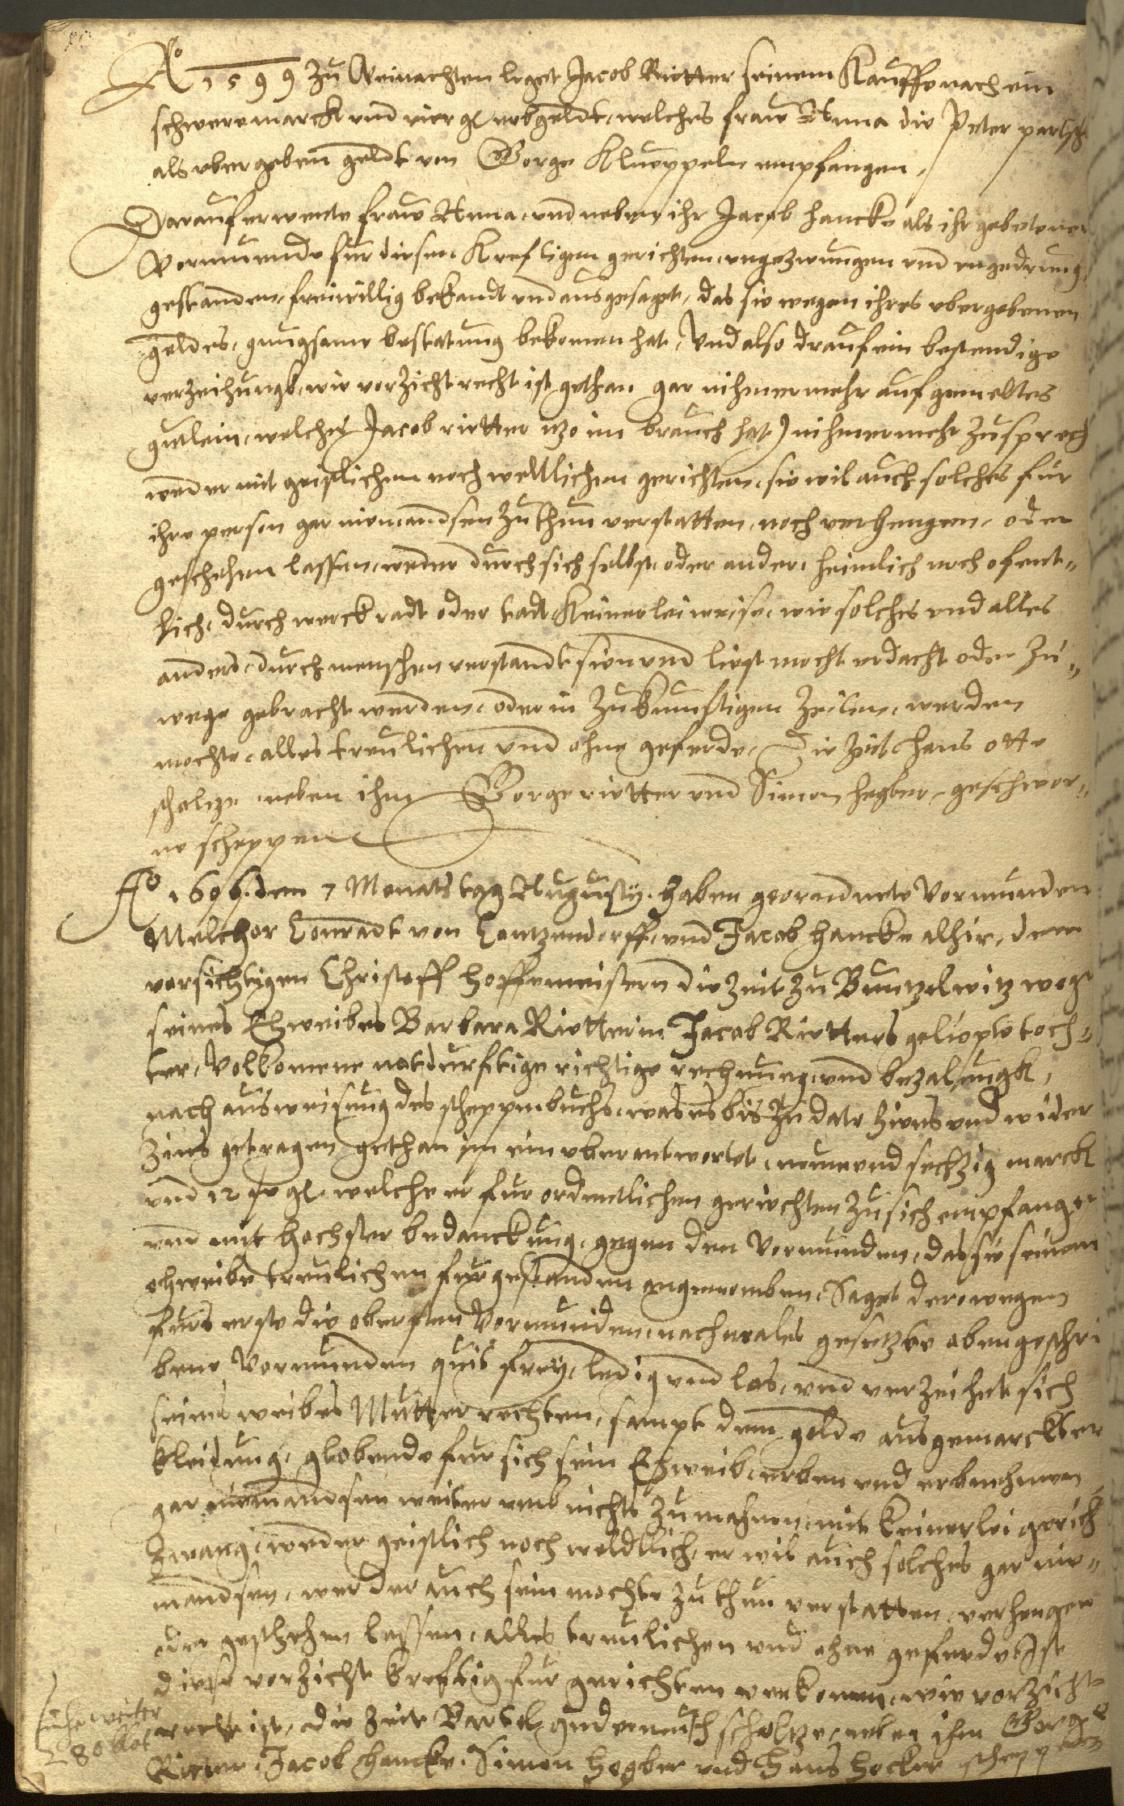 Ao 1599 zu Weinachten leget Jacob Rietter seinem Kauffe nach ein
schwere marck und vier gl erbgeldt, welches fraw Anna die Peter
als ubergeben geldt von George Klueppeln empfangen.
Darauf erwente fraw Anna, und neben ihr Jacob Hancke als ihr gebetener
Vormuende für diesen Kreftigen gerichten, ungezwungen und ungedrung
gestanden, freiwillig bekandt und ausgesaget, das sie wegen ihres ubergebenen
geldes, gnugsame bestatung bekomen hat, Und also drauf ein bestendige
verzeihungk, wie vorzicht recht ist gethan gar nihmermehr auf gemeltes
gutlein, welches Jacob rietter itzo im brauch hat) nihmermehr zusprech
weder mit geistlichen noch weltlichen gerichten, sie wil auch solches für
ihre person gar niemandsen zu thun verstatten, noch verhengen, oder
geschehen lassen, weder durch sich selbst, oder ander, heimlich noch ofent-
lich, durch werck radt oder tadt Keinerlei weise, wie solches und alles
anders, durch menschen verstandt sien und liest mocht erdacht oder zu-
wege gebracht werden, oder in zukunftigen Zeiten, werden
mochte, alles treulichen und ohne geferde, Die Zeit Hans otte
scholtze neben ihm George rietter und Simon Hegber, geschwor-
ne scheppen
Ao 1606. dem 7 Monats tag Augusty. haben georandnete Vormunden
Melchor Conradt von und Jacob Hancke alhir, dem
vorsichtigen Christoff Hoffemeistern die Zeit zu Buntzelwitz weg
seines Ehweibes Barbara Rietterin Jacob Rietters geliepte toch-
ter, Volkomene notdurftige richtige rechnung, und bezalungk,
nach ausweisung des scheppenbuchs, was es bis zu dato hins und wider
Zins getragen gethan ihm ein uberantwortet, neun und sechzig marck
und 12 gl. welche er fur ordentlichen gerichten zu sich empfangen
und mit hochster bedanckung, gegen den Vormunden, das sie seinem
ehweibe treulichen furgestanden angenomben, Saget derowegen
furs erste die obersten Vormunden, nachmales gesetzte obengeschri
bene Vormunden quis frey, ledig und los, und verzeihet sich
seines weibes Mutter rechten, sampt dem gelde ausgemarckter
kleidung, globende fur sich sein Ehweib, erben und erbnehmen
gar niemandsen weiter umb nichts zu mahnen, mit keinerlei gerich
zwang, weder geistlich noch weldtlich, er wil auch solches gar nie-
mandsen, wer der auch sein mochte zu thun verstatten, verhengen
oder geschehen lassen, alles treulichen und ohne geferde, Ist
diese vorzicht kreftig fur gerichten vorkomen, wie vorzicht
recht ist, die Zeit Bartel scholtze, neben ihm George
Rieter, Jacob Hancke, Simon Hegber und Hans Hocker scheppen
suche weiter
80 blat